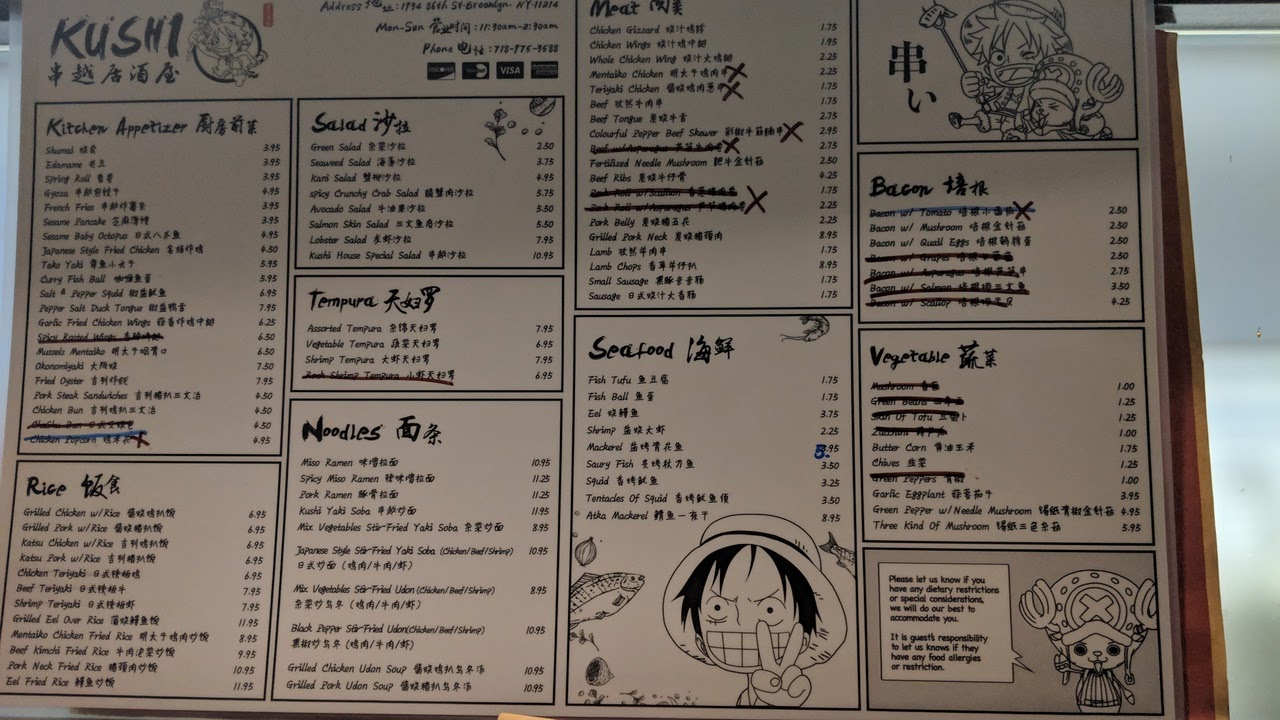 KUSHI
串越居酒屋
Address 地址: 1934 86th St-Brooklyn. NY-11214
Mon-Sun 营业时间: 11:30am-2:30am
Phone 电话: 718-975-9588
DISCOVER VISA
Kitchen Appetizer 厨房前菜
Shumai 烧卖 3.95
Edamame 毛豆 3.95
Spring Roll 春卷 3.95
Gyoza 串郎煎饺子 4.95
French Fries 串郎炸薯条 3.95
Sesame Pancake 芝麻薄饼 3.95
Sesame Baby Octopus 日式八爪鱼 4.95
Japanese Style Fried Chicken 唐扬炸鸡 4.50
Tako Yaki 章鱼小丸子 5.95
Curry Fish Ball 咖喱鱼蛋 5.95
Salt & Pepper Squid 椒盐鱿鱼 6.95
Pepper Salt Duck Tongue 椒盐鸭舌 7.95
Garlic Fried Chicken Wings 蒜香炸鸡中翅 6.25
Spicy Rosted Wings 6.50
Mussels Mentaiko 明太子焗青口 6.50
Okonomiyaki 大阪烧 7.50
Fried Oyster 吉列炸蚝 7.95
Pork Steak Sandwiches 吉列猪扒三文治 4.50
Chicken Bun 吉列鸡扒三文治 4.50
ChaShu Bun 4.50
Chicken Popcorn 鸡米花 4.95
Rice 饭食
Grilled Chicken w/Rice 酱烧鸡扒饭 6.95
Grilled Pork w/Rice 酱烧猪扒饭 6.95
Katsu Chicken w/Rice 吉列鸡扒饭 6.95
Katsu Pork w/Rice 吉列猪扒饭 6.95
Chicken Teriyaki 日式铁板鸡 6.95
Beef Teriyaki 日式铁板牛 7.95
Shrimp Teriyaki 日式铁板虾 7.95
Grilled Eel Over Rice 蒲烧鳗鱼饭 11.95
Mentaiko Chicken Fried Rice 明太子鸡肉炒饭 8.95
Beef Kimchi Fried Rice 牛肉泡菜炒饭 9.95
Pork Neck Fried Rice 猪颈肉炒饭 10.95
Eel Fried Rice 鳗鱼炒饭 11.95
Salad 沙拉
Green Salad 杂菜沙拉 2.50
Seaweed Salad 海藻沙拉 3.75
Kani Salad 蟹柳沙拉 4.95
Spicy Crunchy Crab Salad 辣蟹肉沙拉 5.75
Avocado Salad 牛油果沙拉 5.50
Salmon Skin Salad 三文鱼皮沙拉 5.50
Lobster Salad 龙虾沙拉 7.95
Kushi House Special Salad 串郎沙拉 10.95
Tempura 天妇罗
Assorted Tempura 杂锦天妇罗 7.95
Vegetable Tempura 蔬菜天妇罗 6.95
Shrimp Tempura 大虾天妇罗 7.95
Rock Shrimp Tempura 小虾天妇罗 6.95
Noodles 面条
Miso Ramen 味噌拉面 10.95
Spicy Miso Ramen 辣味噌拉面 11.25
Pork Ramen 豚骨拉面 11.25
Kushi Yaki Soba 串郎炒面 11.25
Mix Vegetables Stir-Fried Yaki Soba 杂菜炒面 8.95
Japanese Style Stir-Fried Yaki Soba (Chicken/Beef/Shrimp) 10.95
日式炒面 (鸡肉/牛肉/虾)
Mix Vegetables Stir-Fried Udon(Chicken/Beef/Shrimp) 8.95
杂菜炒乌冬 (鸡肉/牛肉/虾)
Black Pepper Stir-Fried Udon(Chicken/Beef/Shrimp) 10.95
黑椒炒乌冬 (鸡肉/牛肉/虾)
Grilled Chicken Udon Soup 酱烧鸡扒乌冬汤 10.95
Grilled Pork Udon Soup 酱烧猪扒乌冬汤 10.95
Meat 肉类
Chicken Gizzard 烧汁鸡胗 1.75
Chicken Wings 烧汁鸡中翅 1.95
Whole Chicken Wing 烧汁大鸡翅 2.25
Mentaiko Chicken 明太子鸡肉串 2.25
Teriyaki Chicken 酱烧鸡肉葱串 1.75
Beef 孜然牛肉串 1.75
Beef Tongue 炭烧牛舌 2.75
Colourful Pepper Beef Skewer 彩椒牛筋腩串 2.95
Beef w/Asparagus 2.75
Fertilized Needle Mushroom 肥牛金针菇 2.50
Beef Ribs 炭烧牛仔骨 4.25
Pork Roll w/Scallion 1.75
Pork Roll w/Asparagus 2.25
Pork Belly 炭烧猪五花 2.25
Grilled Pork Neck 炭烧猪颈肉 8.95
Lamb 孜然羊肉串 1.75
Lamb Chops 香草羊仔扒 8.95
Small Sausage 黑豚香香肠 1.75
Sausage 日式烧汁大香肠 1.75
Seafood 海鲜
Fish Tofu 鱼豆腐 1.75
Fish Ball 鱼蛋 1.75
Eel 烧鳗鱼 3.75
Shrimp 盐烧大虾 2.25
Mackerel 盐烤青花鱼 5.95
Saury Fish 炙烤秋刀鱼 3.50
Squid 香烤鱿鱼 3.25
Tentacles Of Squid 香烤鱿鱼须 3.50
Atka Mackerel 鲭鱼一夜干 8.95
串い
Bacon 培根
Bacon w/ Tomato 培根小番茄 2.50
Bacon w/ Mushroom 培根金针菇 2.50
Bacon w/ Quail Eggs 培根鹌鹑蛋 2.50
Bacon w/ Grapes 2.50
Bacon w/ Asparagus 2.75
Bacon w/ Salmon 培根烧三文鱼 3.50
Bacon w/ Scallop 4.25
Vegetable 蔬菜
Mushroom 香菇 1.00
Green Beans 1.25
Skin Of Tofu 1.25
Zucchini 1.00
Butter Corn 黄油玉米 1.75
Chives 韭菜 1.25
Green Peppers 青椒 1.00
Garlic Eggplant 蒜蓉茄子 3.95
Green Pepper w/Needle Mushroom 锡纸青椒金针菇 4.95
Three Kind Of Mushroom 锡纸三色杂菇 5.95
Please let us know if you
have any dietary restrictions
or special considerations,
we will do our best to
accommodate you.
It is guest's responsibility
to let us knows if they
have any food allergies
or restriction.